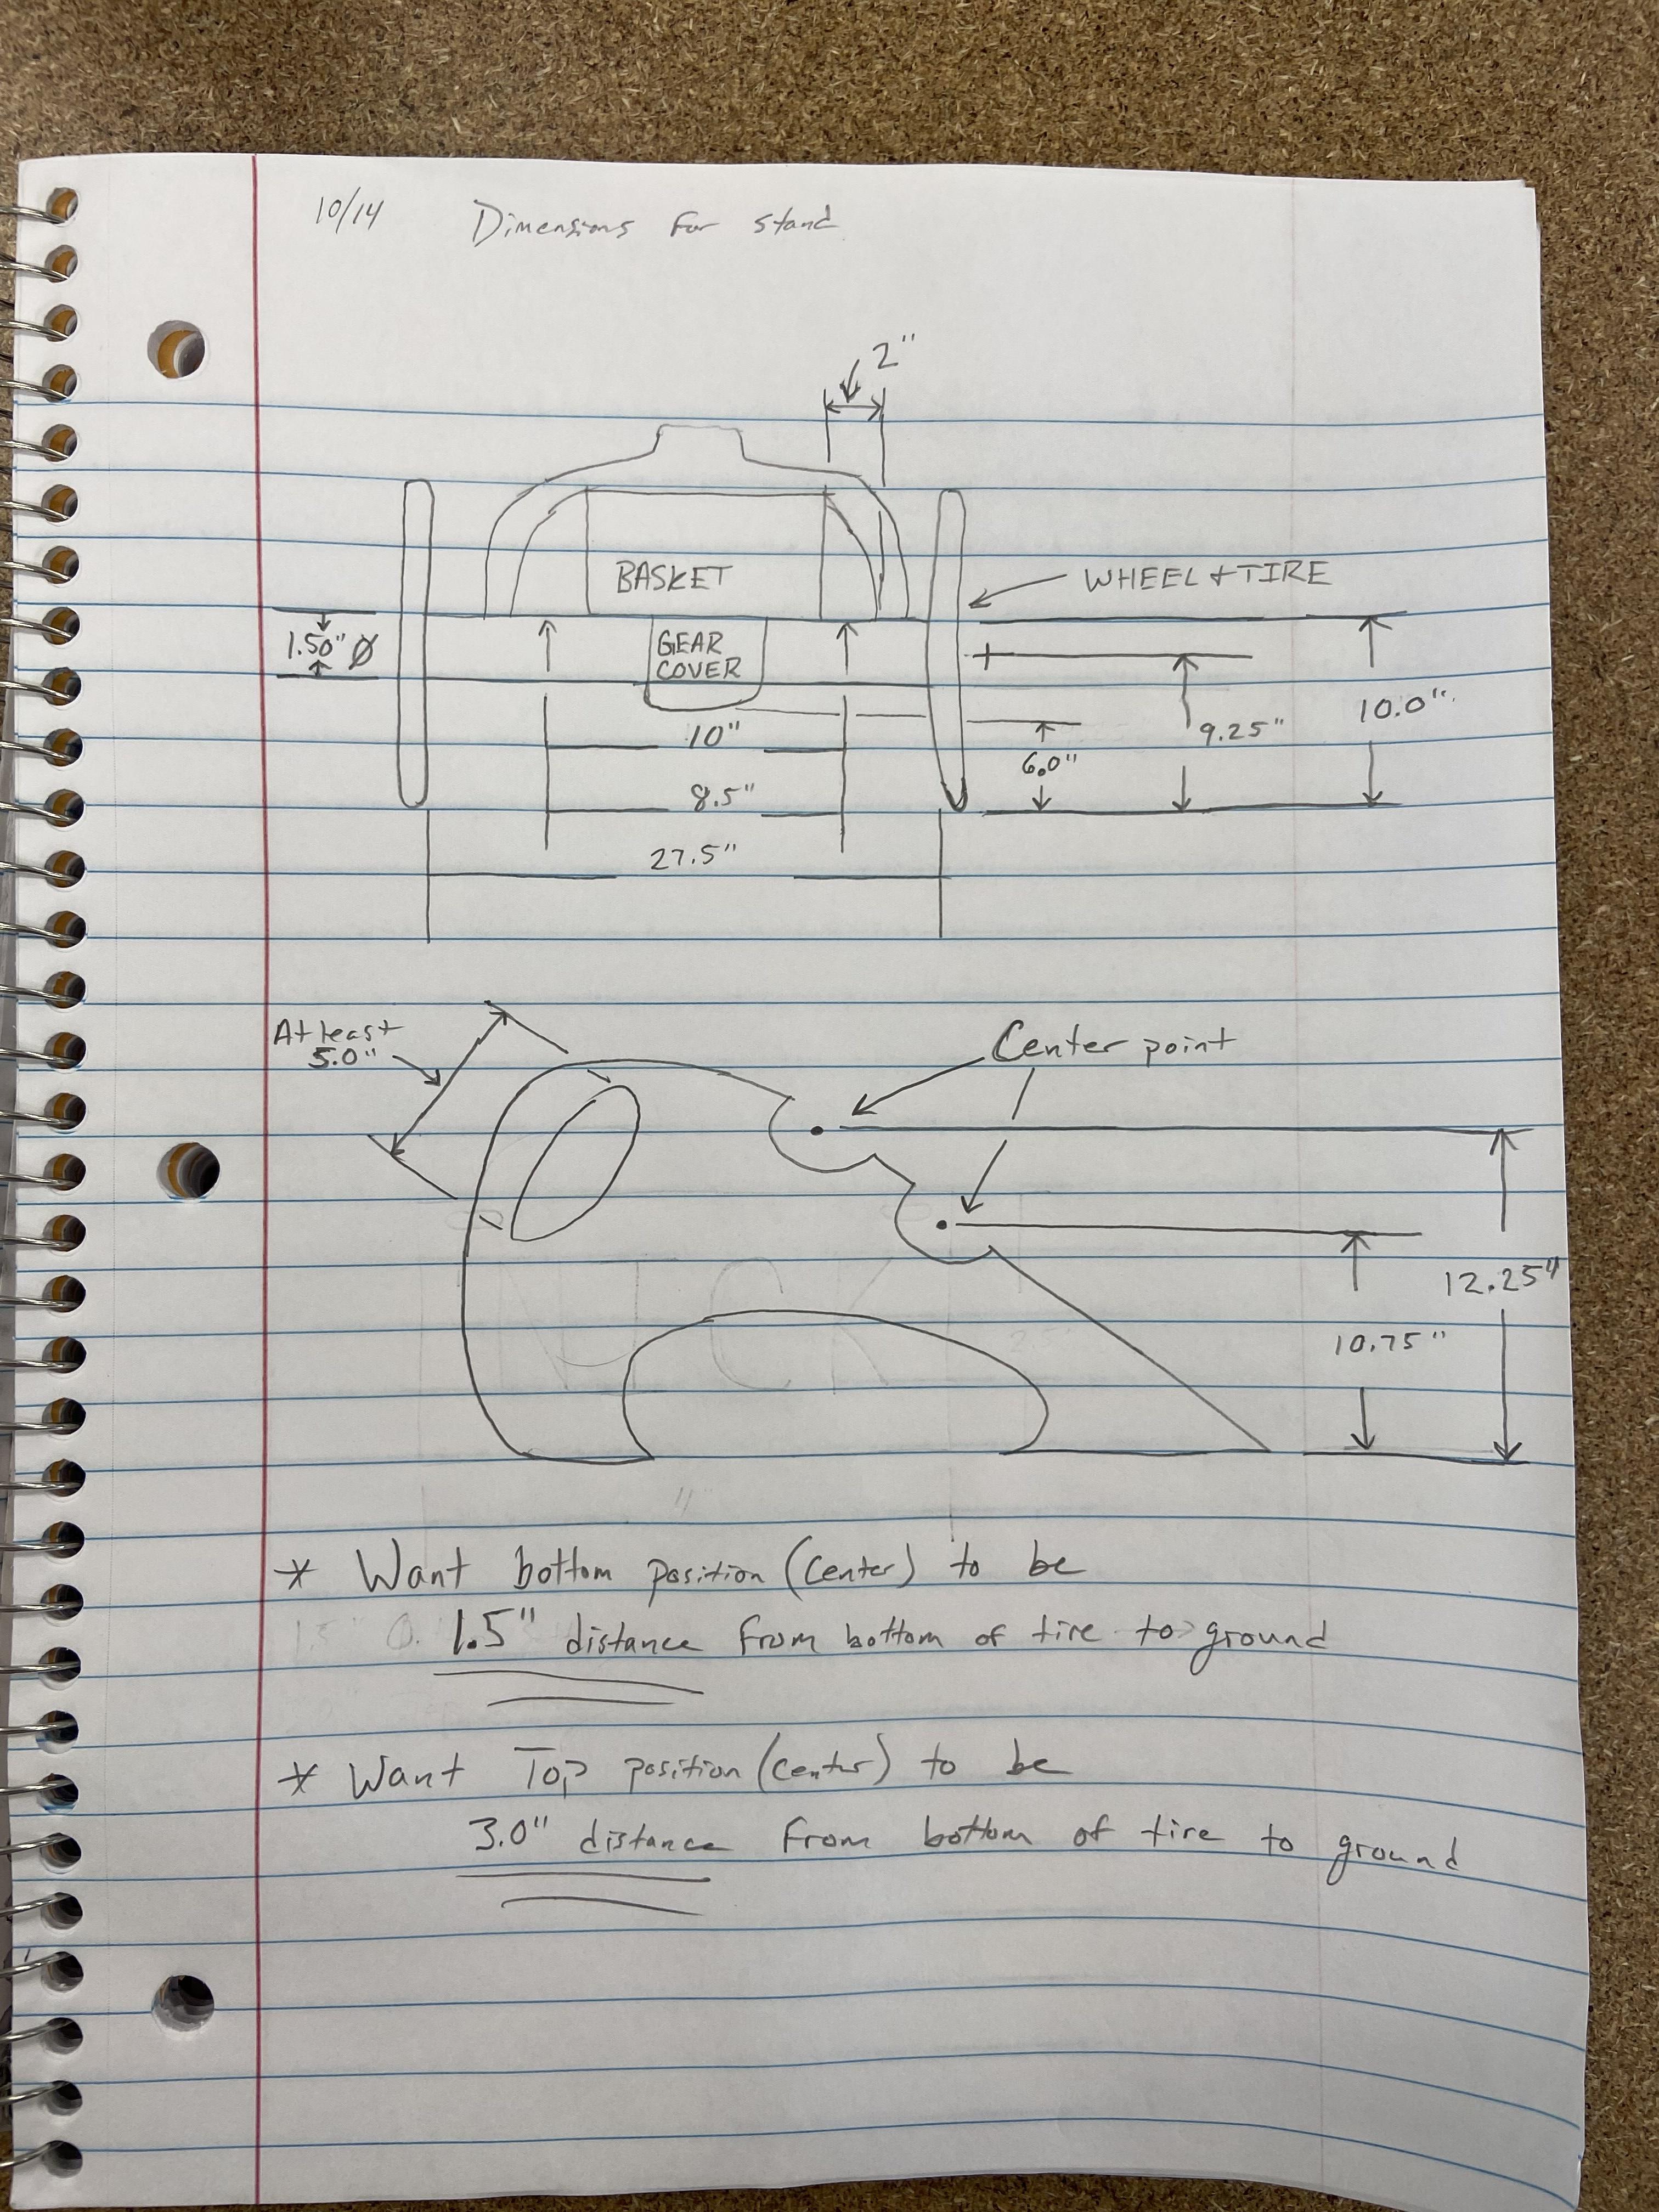 10/14 Dimensions For Stand
2"
BASKET
WHEEL & TIRE
1.50" Ø
GEAR
COVER
10.0"
9.25"
6.0"
10"
8.5"
27.5"
At least
5.0"
Center point
12.25"
10.75"
* Want bottom position (center) to be
1.5" distance from bottom of tire to ground
* Want Top position (center) to be
3.0" distance from bottom of tire to ground